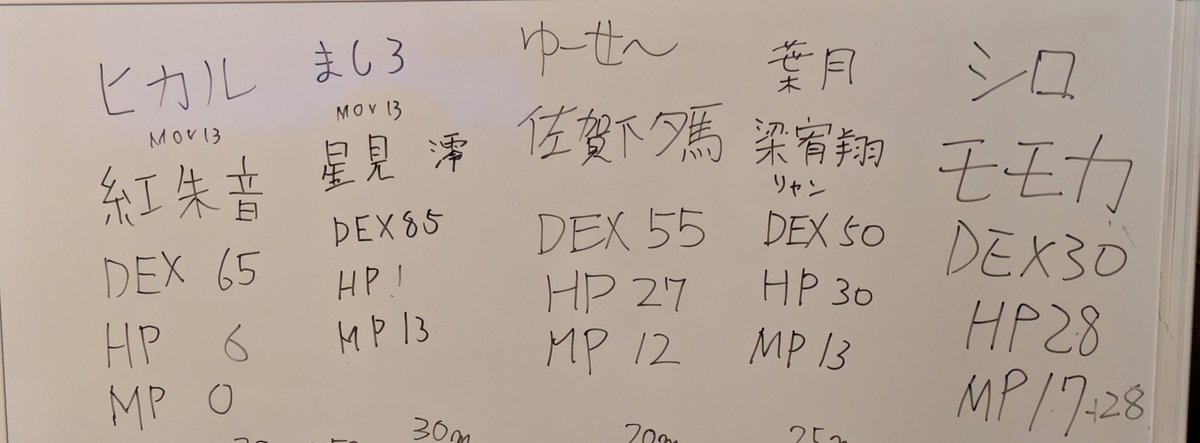 ヒカル
MOV13
紅朱音
DEX 65
HP 6
MP 0
ましろ
MOV 13
星見 澪
DEX85
HP 1
MP 13
ゆーせ〜
佐賀下夕馬
DEX 55
HP 27
MP 12
葉月
梁宥翔
リャン
DEX 50
HP 30
MP 13
シロ
モモカ
DEX30
HP28
MP17+28
30m
20m
25m